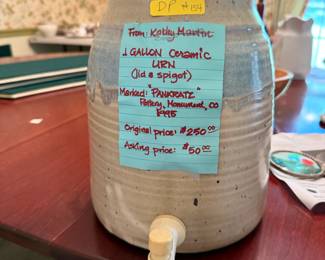 DP #154
From: Kathy Martin
1 GALLON Ceramic
URN
(lid & spigot)
Marked: "PANKRATZ"
Pottery, Monument, CO
1995
Original price: $250.00
Asking price: $50.00